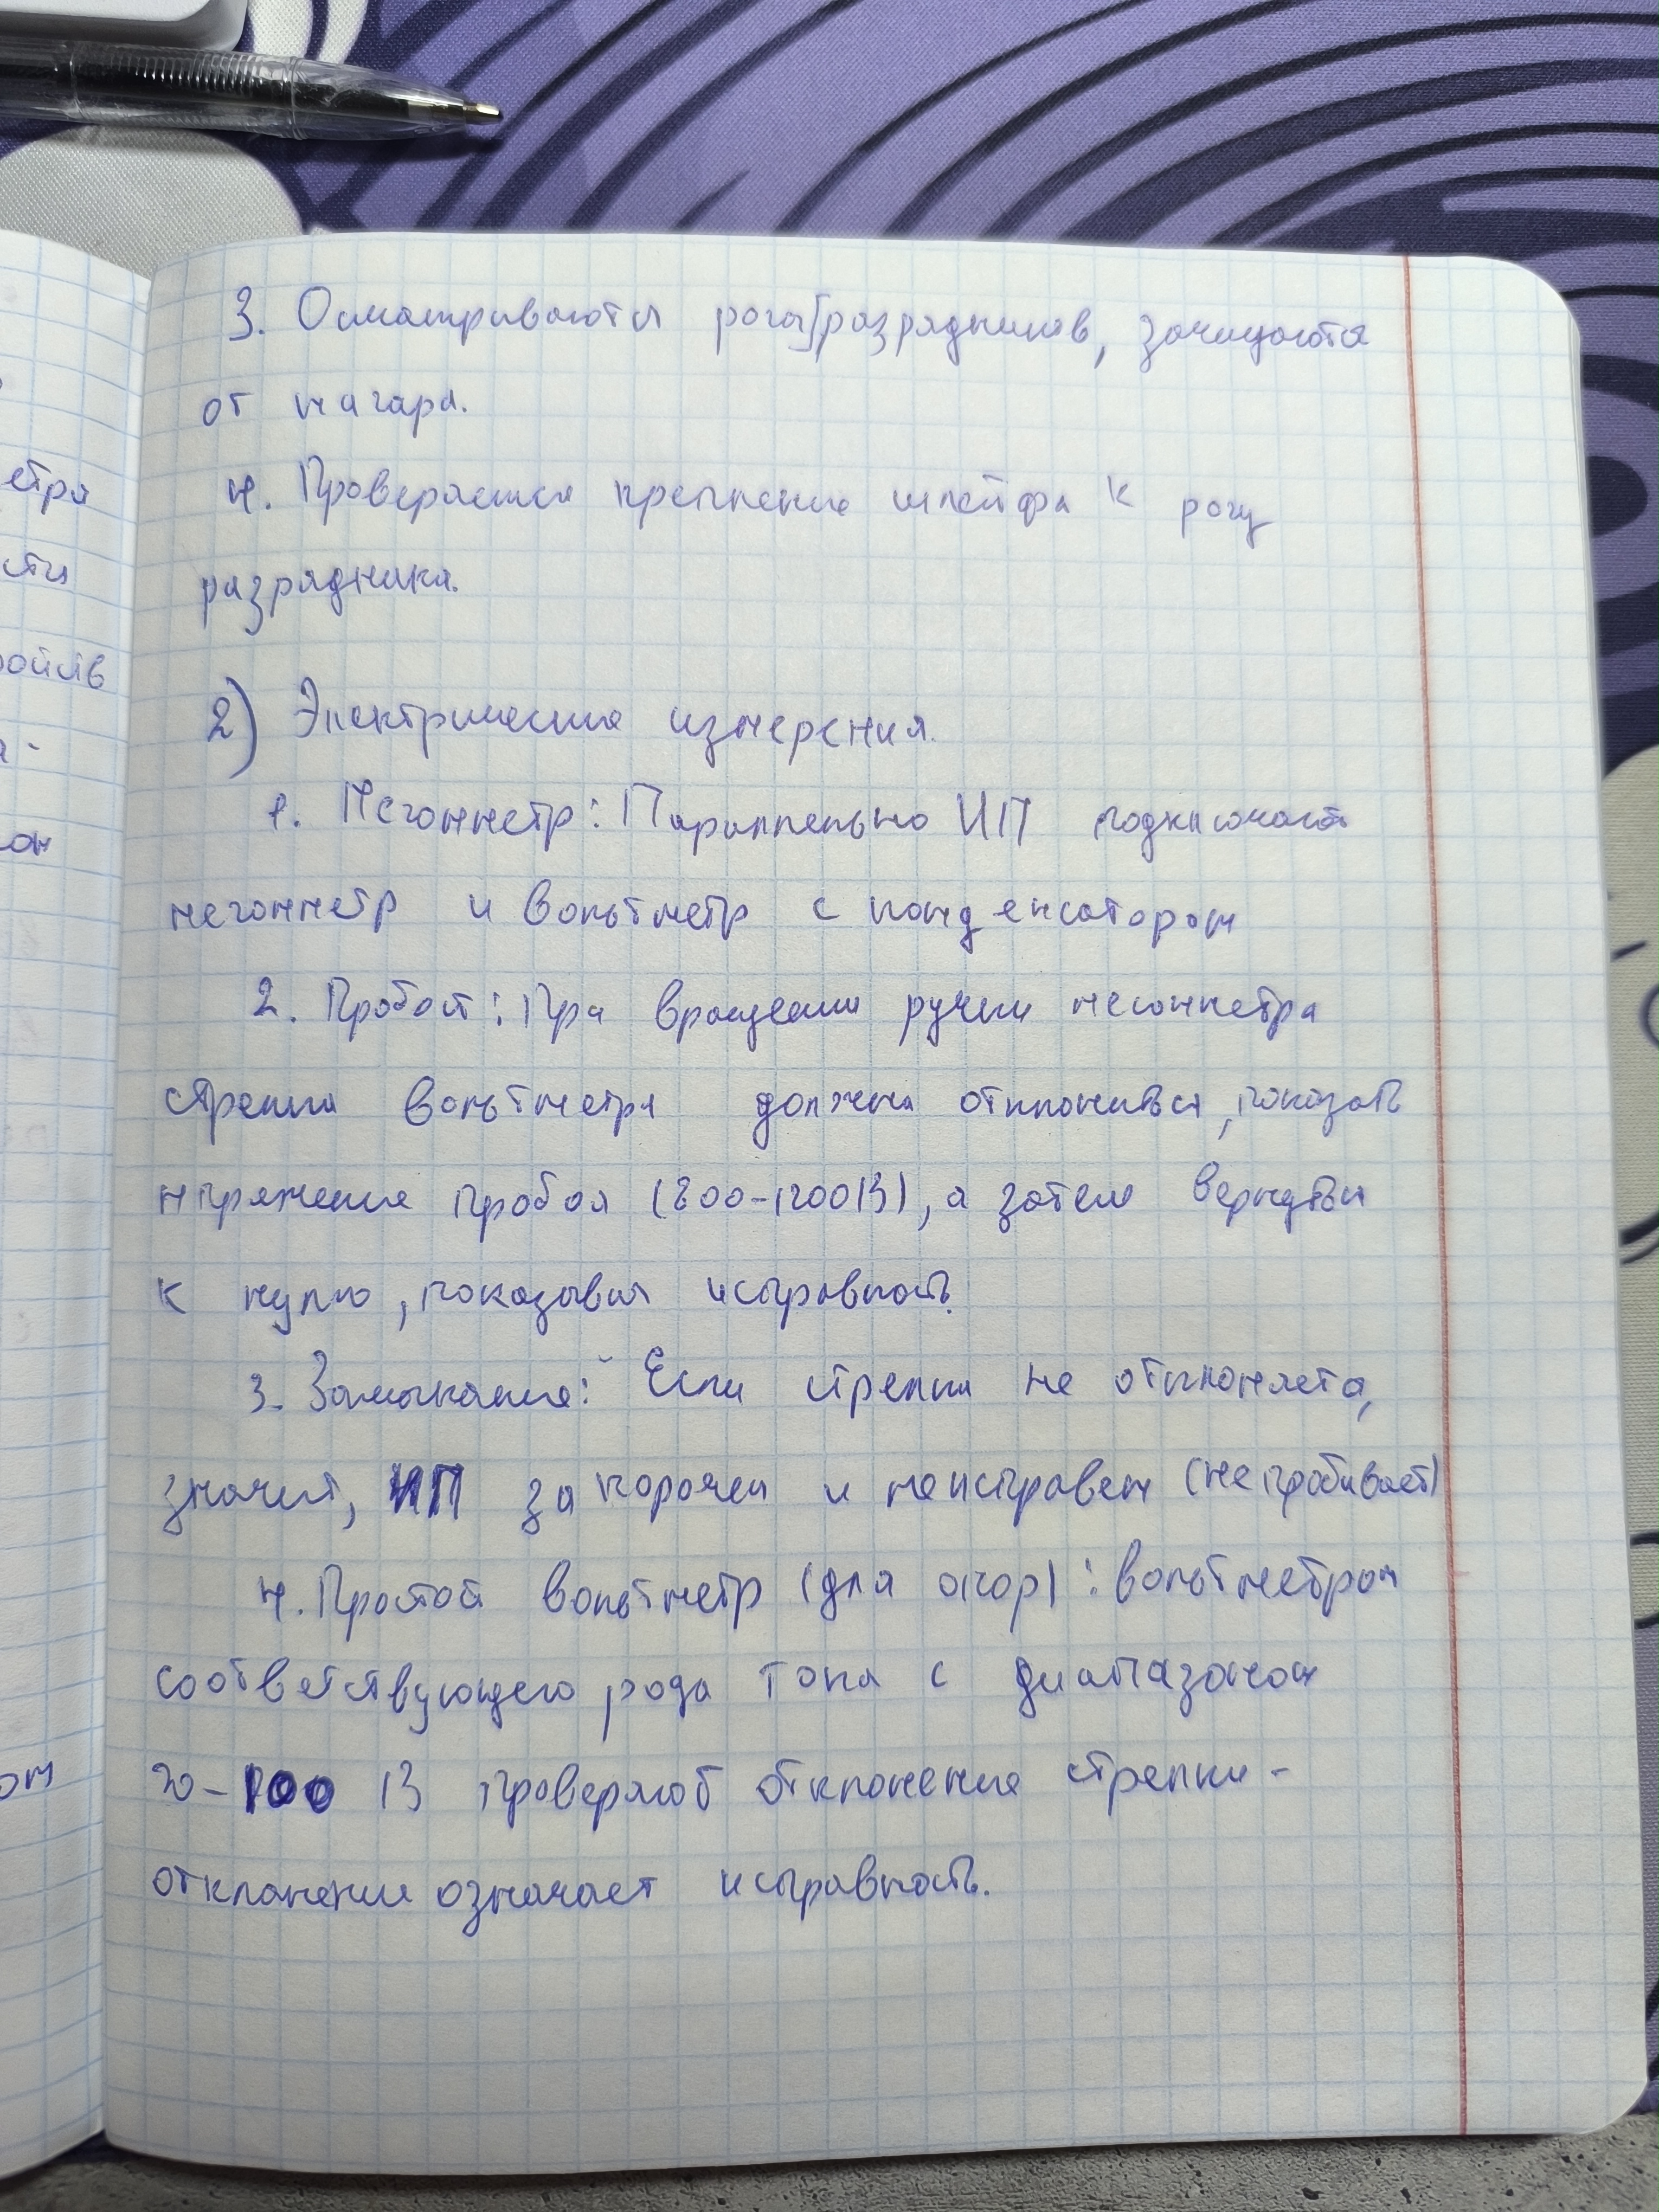 3. Осматриваются рога разрядников, зачищаются
от нагара.
4. Проверяется крепление шлейфа к рогу
разрядника.
2) Электрические измерения.
1. Мегомметр: Параллельно ИП подключают
мегомметр и вольтметр с конденсатором
2. Пробой: При вращении ручки мегомметра
стрелка вольтметра должна отклониться, показать
нпряжение пробоя (800-1200В), а затем вернуться
к нулю, показывая исправность.
3. Замыкание: Если стрелка не отклоняется,
значит, ИП закорочен и неисправен (не пробивает)
4. Простой вольтметр (для опор): вольтметром
соответствующего рода тока с диапазоном
20-100 В проверяют отклонение стрелки -
отклонение означает исправность.
етра
сти
ройств
он
ом